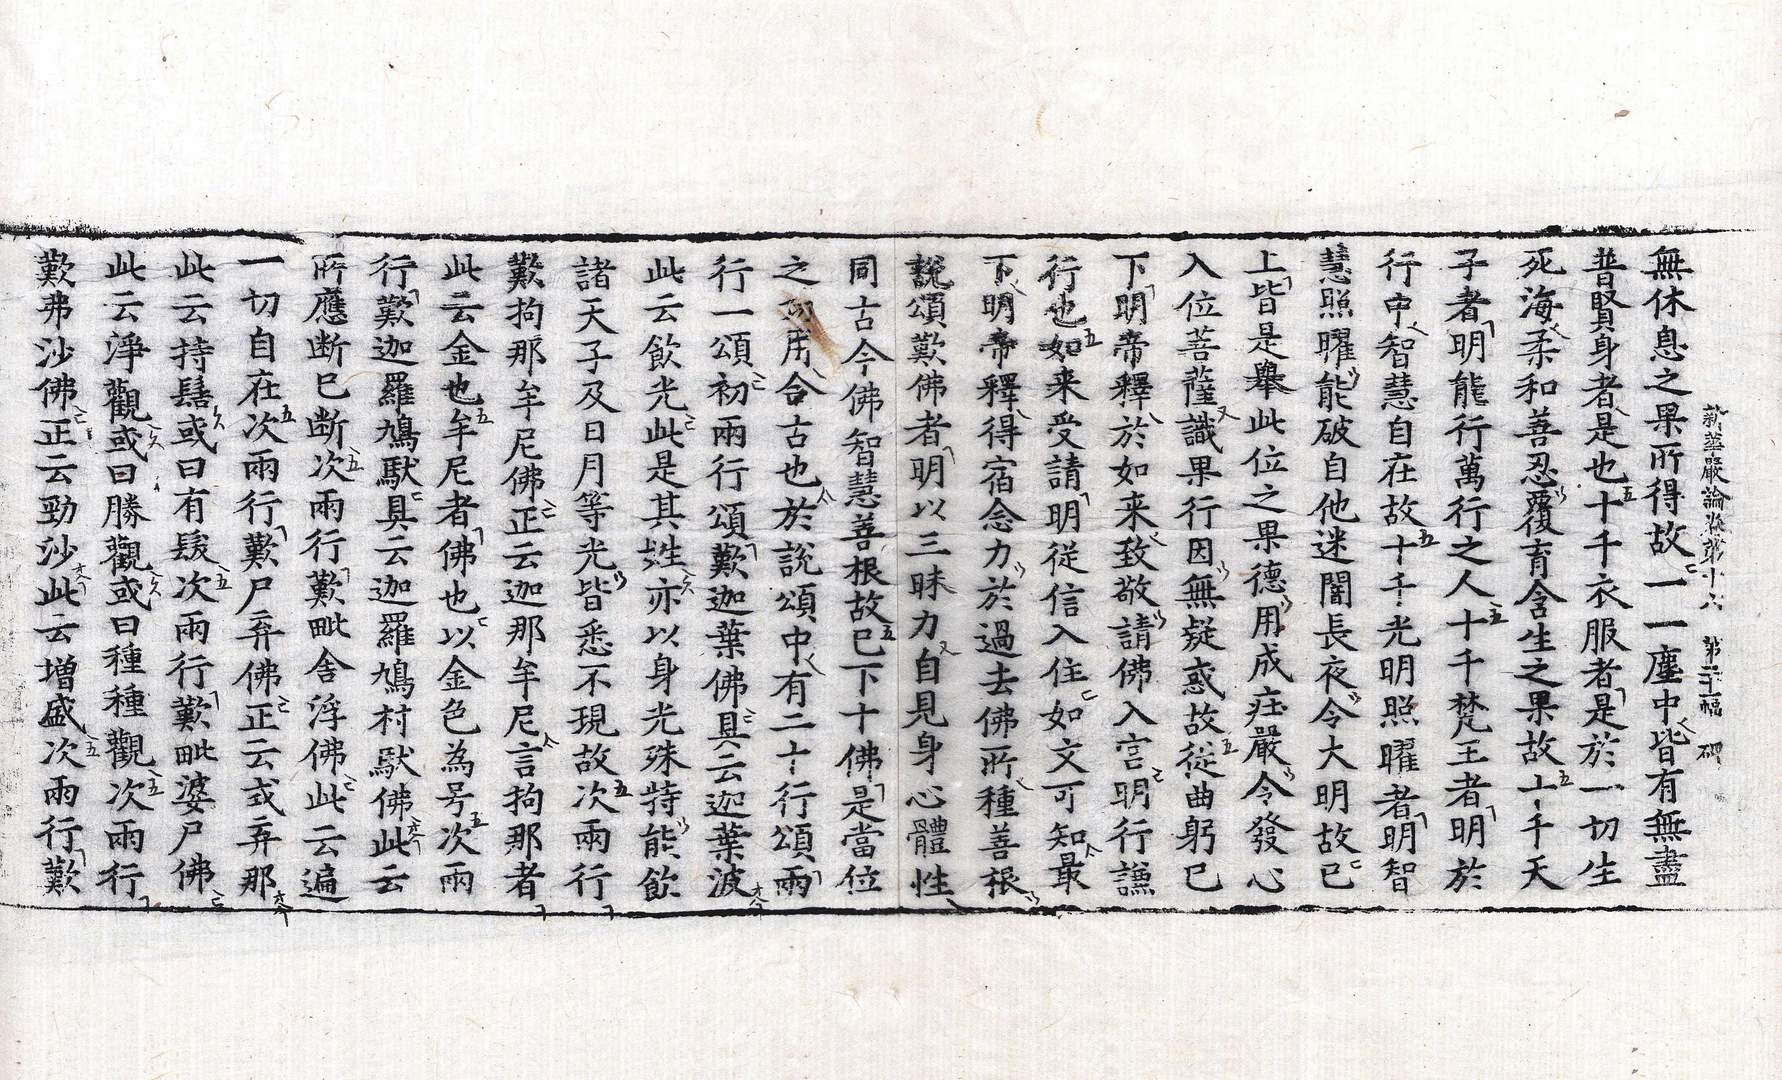 新華嚴論卷第十六　第二十幅　硎
無休息之果所得故一一塵中皆有無盡
普賢身者是也十千衣服者是於一切生
死海柔和善忍覆育含生之果故十千天
子者明能行萬行之人十千梵王者明於
行中智慧自在故十千光明照曜者明智
慧照曜能破自他迷闇長夜令大明故已
上皆是舉此位之果德用成莊嚴令發心
入位菩薩識果行因無疑惑故從曲躬已
下明帝釋於如来致敬請佛入宫明行謙
行也如来受請明從信入住如文可知最
下明帝釋得宿念力於過去佛所種善根
說頌歎佛者明以三昧力自見身心體性
同古今佛智慧善根故已下十佛是當位
之用合古也於說頌中有二十行頌兩
行一頌初兩行頌歎迦葉佛具云迦葉波
此云飲光此是其姓亦以身光殊特能飲
諸天子及日月等光皆悉不現故次兩行
歎拘那牟尼佛正云迦那牟尼言拘那者
此云金也牟尼者佛也以金色為号次兩
行歎迦羅鳩馱具云迦羅鳩村馱佛此云
所應断已断次兩行歎毗舍浮佛此云遍
一切自在次兩行歎尸弃佛正云式弃那
此云持髻或曰有髮次兩行歎毗婆尸佛
此云淨觀或曰勝觀或曰種種觀次兩行
歎弗沙佛正云勃沙此云增盛次兩行歎